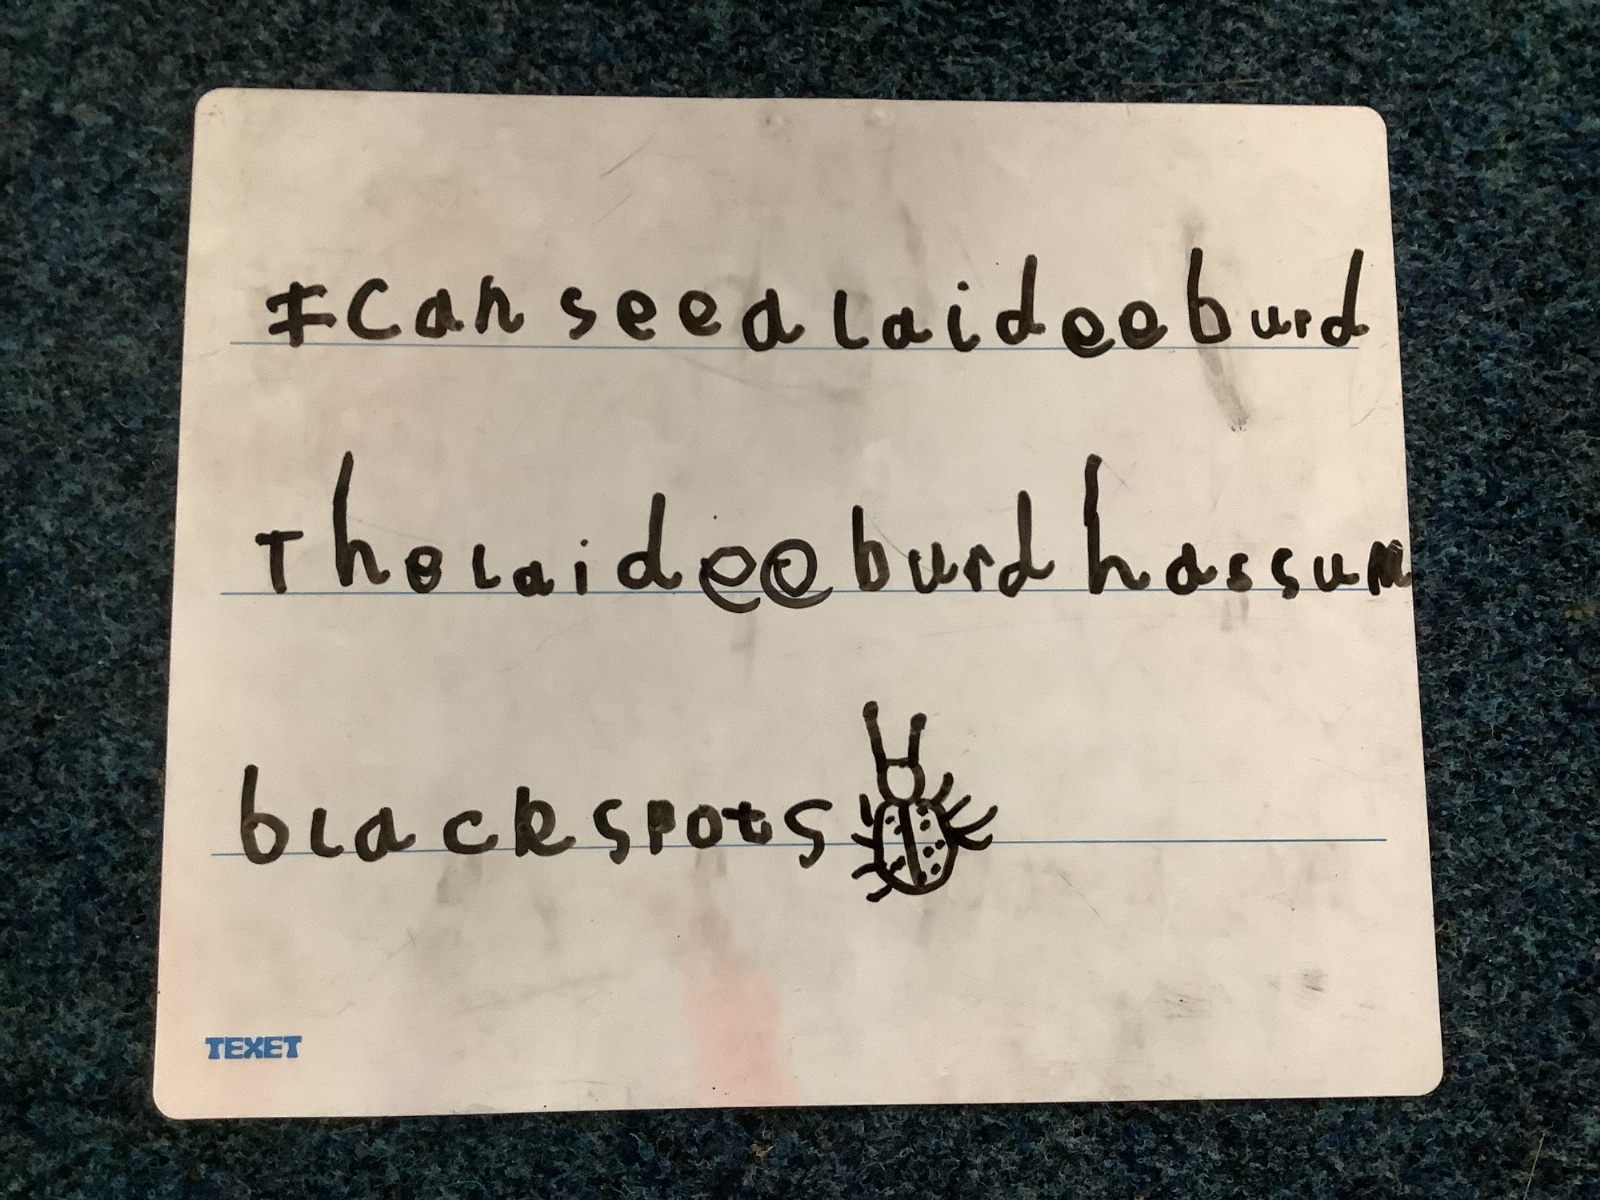 I can see a laideeburd
The laideeburd has sum
black spots
TEXET